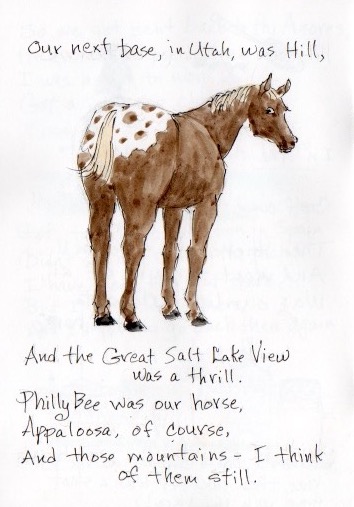 Our next base, in Utah, was Hill,
And the Great Salt Lake View
was a thrill.
PhillyBee was our horse,
Appaloosa, of course,
And those mountains - I think
of them still.